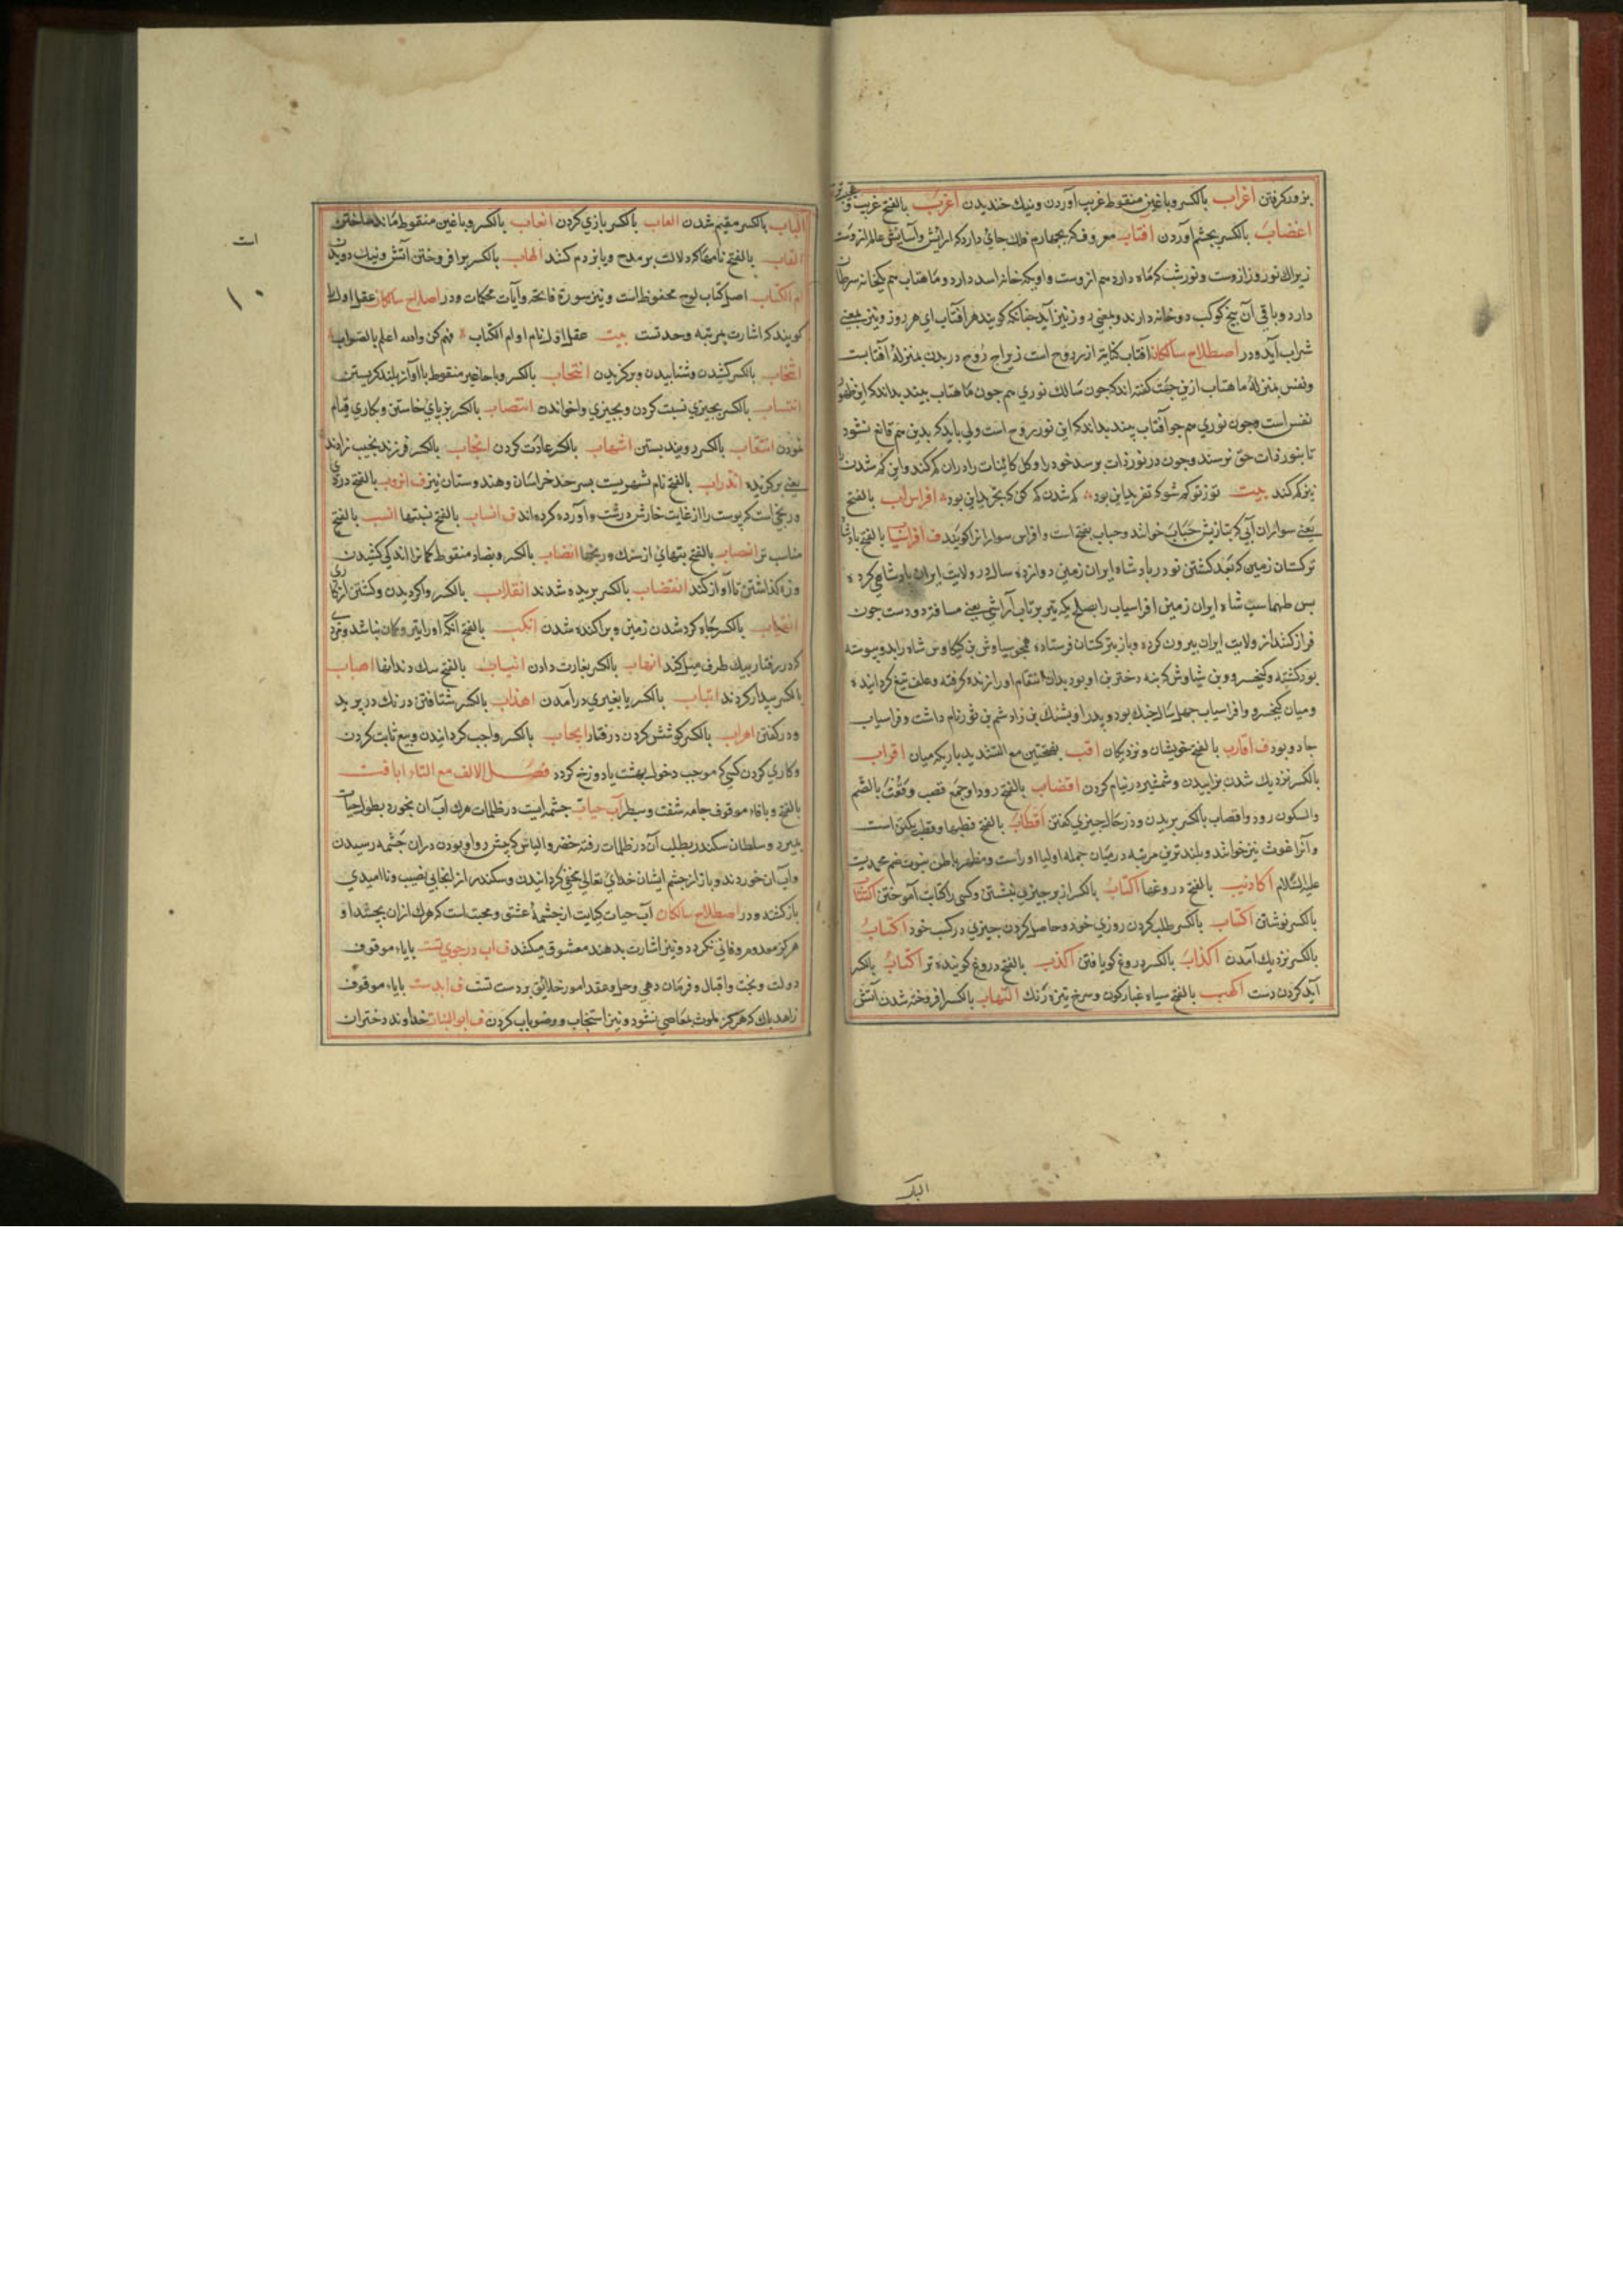 بزور کرفتن اغراب بالکسر وباغین منقوط غریب آوردن ونیك خندیدن اغرب بالفتح غریب
اغضاب بالکسر بخشم آوردن آفتاب معروف که بچهارم فلك جائی دارد که آرایش وآسایش عالم ازوست
زیراك نور روز ازوست ونور شب که ماه دارد هم ازوست واو یکخانه اسد دارد وماهتاب هم یکخانه سرطان
دارد وباقی آن پنج کوکب دو خانه دارند وبمعنی روز نیز آید چنانکه کویند هر آفتاب ای هر روز ونیز بمعنی
شراب آید ودر اصطلاح سالکان آفتاب کنایة از روح است زیراچه روح در بدن بمنزلۀ آفتابست
ونفس بمنزلۀ ماهتاب ازین جهت کفته اند که چون سالك نوری هم چون ماهتاب بیند بداند که این ظهور
نفس است وچون نوری هم چو آفتاب بیند بداند که این نور روح است ولی باید که بدین هم قانع نشود
تا بنور ذات حق نرسند وچون در نور ذات برسد خود را وکل کائینات را دران کم کند واین کم شدن
نیز کم کند بیت تو زتو کم شو که تفرید این بود کم شدن کم کن که تجرید این بود افراس آب بالفتح
یعنی سواران آبی که بتازیش حباب خوانند وحباب بفتح است وافراس سوارانرا کویند ف افراسیاب بالفتح بادشاه
ترکستان زمین که بعد کشتن نودر بادشاه ایران زمین دوازده سال در ولایت ایران بادشاهی کرده
بس طهماسب شاه ایران زمین افراسیاب را بصلح یکه تیر پرتاب آرشی یعنی مسافة دو دست چون
فراز کنند از ولایت ایران بیرون کرده وباز بترکستان فرستاده همچو سیاوش بن کیکاوس شاه را بدو پیوسته
بود کشته وکیخسرو بن شیاوش که بنه دختر بن او بود بدان انتقام او را زنده کرفته وعلف تیغ کردانیده
ومیان کیخسرو وافراسیاب چهل سال جنك بود وپدر او پشنك بن زادشم بن تور نام داشت وفراسیاب
جادو بود ف اقارب بالفتح خویشان ونزدیکان اقب بفتحتین مع التشدید باریکمیان اقراب
بالکسر نزدیك شدن بزاییدن وشمشیر در نیام کردن اقصاب بالفتح رودها وجمع قصب وقصب بالضم
والسکون رود واقصاب بالکسر بریدن ودر حال چیزی کفتن اقطاب بالفتح قطبها وقطب یکتن است
وآنرا غوث نیز خوانند وبلندترین مرتبه درمیان جمله اولیا اوراست ومظهر باطن نبوت هم محمدیست
علیه السلام اکاذیب بالفتح دروغها اکتاب بالکسر از بر چیزی نبشتن وکسی را کتابت آموختن اکتتاب
بالکسر نوشتن اکتساب بالکسر طلب کردن روزی خود وحاصل کردن چیزی در کسب خود اکثاب
بالکسر نزدیك آمدن اکذاب بالکسر دروغ کو یافتن اکذب بالفتح دروغ کوینده تر اکناب بالکسر
آبله کردن دست اکهب بالفتح سیاه غبارکون وسرخ تیره رنك التهاب بالکسر افروخته شدن آتش
الباب
الباب بالکسر مقیم شدن العاب بالکسر بازی کردن الغاب بالکسر وباغین منقوط مانده ساختن
القاب بالفتح نامها که دلالت بر مدح ویا بر ذم کنند الهاب بالکسر برافروختن آتش ونیك دویدن
ام الکتاب اصل کتاب لوح محفوظ است ونیز سورۀ فاتحه وآیات محکمات ودر اصلاح سالکان عقل اول را
کویند که اشارت بمرتبه وحدتست بیت عقل اول نام او ام الکتاب فهم کن والله اعلم بالصواب
انتخاب بالکسر کشیدن وشتابیدن وبرکزیدن انتحاب بالکسر وبا حا غیر منقوط با آواز بلند کریستن
انتساب بالکسر بچیزی نسبت کردن وبچیزی واخواندن انتصاب بالکسر بر پای خاستن وبکاری قیام
نمودن انتقاب بالکسر روبند بستن انتهاب بالکسر غارت کردن انجاب بالکسر فرزند نجیب زاوند
یعنی برکزیده اندراب بالفتح نام شهریست بسرحد خراسان وهندوستان نیز ف انروب بالفتح دردی
ورنجی است که پوست را از غایت خارش درشت وآورده کرده اند ف انساب بالفتح نسبتها انسب بالفتح
مناسب تر انصاب بالفتح بتهائ از سنك ورنجها انضاب بالکسر وبضاد منقوط کمانرا اندکی کشیدن
وزه کذاشتن تا آواز کند انقضاب بالکسر بریده شدند انقلاب بالکسر واکردیدن وکشتن از کاری
بالکسر چاه کرد شدن زمین وپراکنده شدن انکب بالفتح آنکه او را تیر وکمان نباشد وشتر
که در رفتار بیك طرف میل کند انهاب بالکسر بغارت دادن انیاب بالفتح سك دندانها اهباب
بالکسر بیدار کردند اتیاب بالکسر یا بغیری درآمدن اهذاب بالکسر شتافتن درنك در پرید
ودر کفتن اهراب بالکسر کوشش کردن در رفتار ایجاب بالکسر واجب کردانیدن وبیع ثابت کردن
وکاری کردن کسی که موجب دخول بهشت یا دوزخ کردد فصل الالف مع التاء ابافت
بالفتح وبافاء موقوف جامه شفت وسطبر آب حیات چشمه ایست در ظلمات هرك آب آن بخورد بطول حیات
نمیرد وسلطان سکندر بطلب آن در ظلمات رفته خضر والیاس که پیش رو او بودن دران چشمه رسیدن
وآب آن خوردند وباز از چشم ایشان خدای تعالی مخفی کردانیدن وسکندر از انجا بی نصیب ونا امیدی
بازکشند ودر اصطلاح سالکان آب حیات کنایت از چشمۀ عشق ومحبت است که هرك ازان بچشد او
هرکز معدوم وفانی نکردد ونیز اشارت بدهند معشوق میکنند ف آب در جوی تست بایاء موقوف
دولت وبخت واقبال وفرمان دهی وحل وعقد امور خلائق بر دست تست ف ابدست بایاء موقوف
زاهد پاك که هرکز بلوث معاصی نشود ونیز استنجاب ووضو باب کردن ف ابو البنات خداوند دختران
ات
۱۰